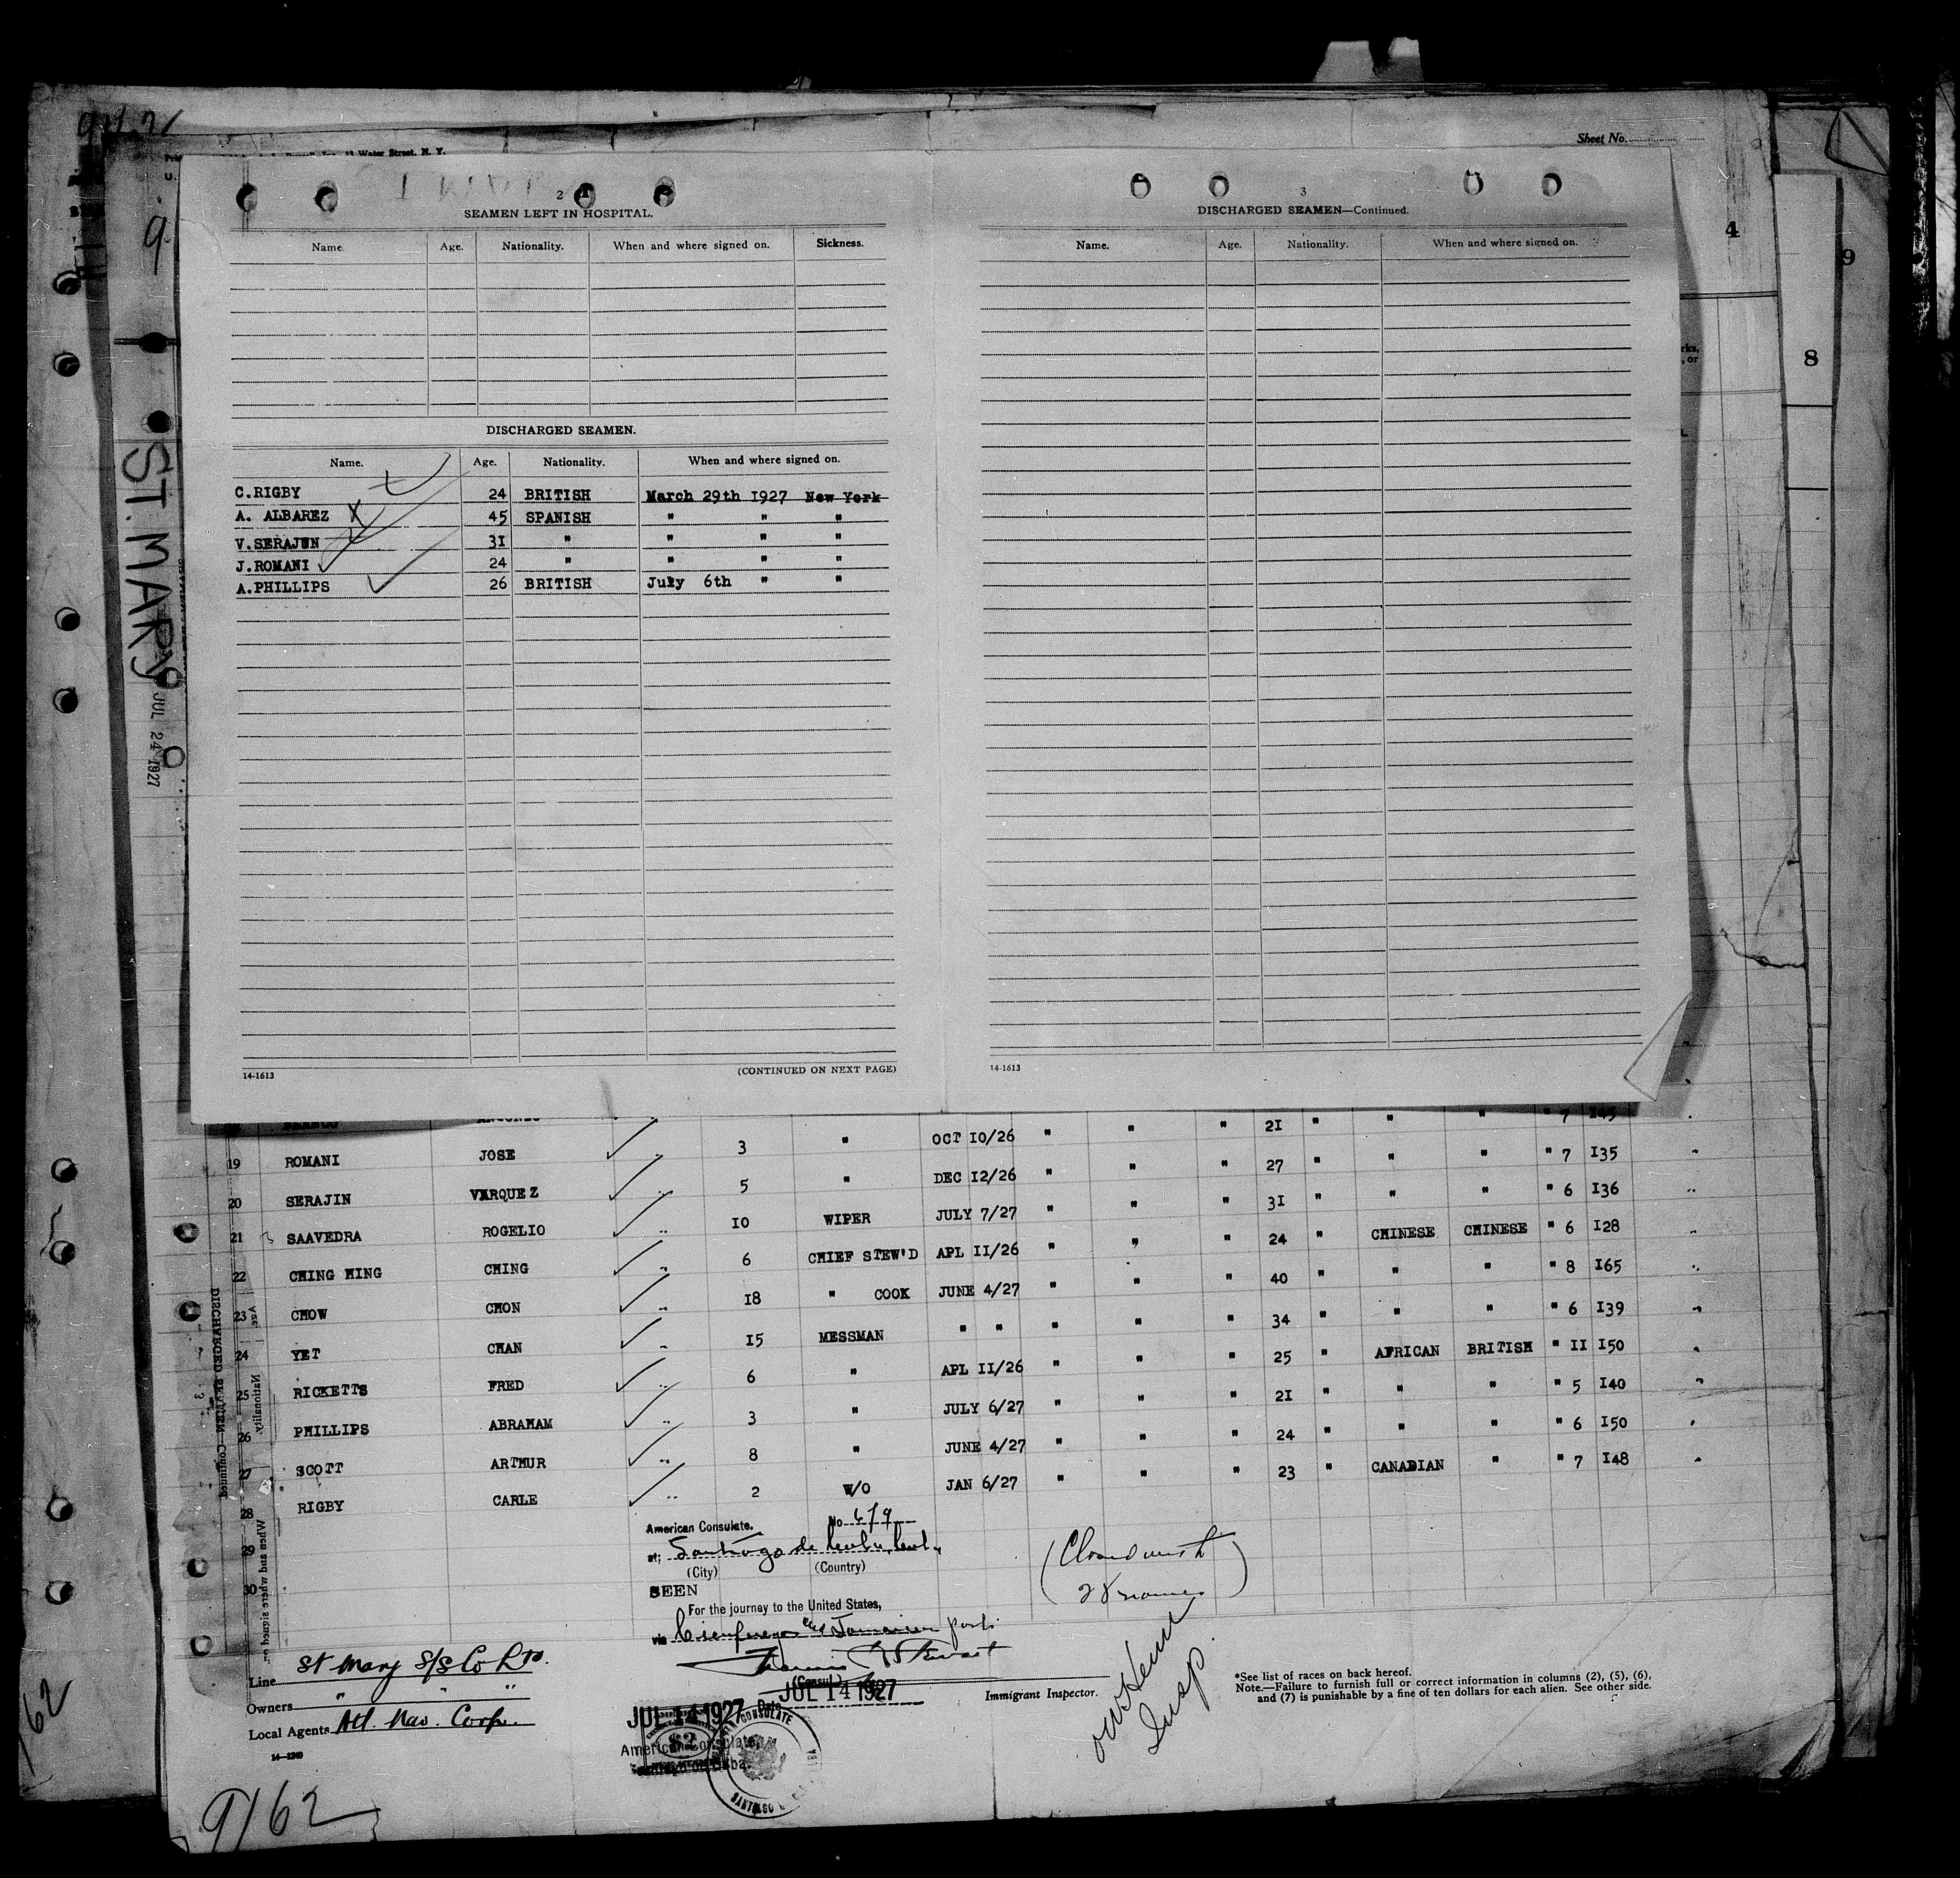 Sheet No.
Water Street. N. Y.
9
4
9
8
ST. MARY
JUL 24 1927
2
SEAMEN LEFT IN HOSPITAL.
Name. Age. Nationality. When and where signed on. Sickness.
DISCHARGED SEAMEN.
Name. Age. Nationality. When and where signed on.
C.RIGBY 24 BRITISH March 29th 1927 New York
A. ALBAREZ 45 SPANISH " " "
V.SERAJUN 31 " " " "
J.ROMANI 24 " " " "
A.PHILLIPS 26 BRITISH July 6th " "
14-1613 (CONTINUED ON NEXT PAGE)
3
DISCHARGED SEAMEN—Continued.
Name. Age. Nationality. When and where signed on.
14-1613
19 ROMANI JOSE 3 " OCT 10/26 " " " 21 " " " " 7 145
20 SERAJIN VARQUEZ 5 " DEC 12/26 " " " 27 " " " " 7 135
21 SAAVEDRA ROGELIO 10 WIPER JULY 7/27 " " " 31 " " " " 6 136
22 CHING HING CHING 6 CHIEF STEW'D APL 11/26 " " " 24 " CHINESE CHINESE " 6 128
23 CHOW CHON 18 " COOK JUNE 4/27 " " " 40 " " " " 8 165
24 YET CHAN 15 MESSMAN " " " " " 34 " " " " 6 139
25 RICKETTS FRED 6 " APL 11/26 " " " 25 " AFRICAN BRITISH " 11 150
26 PHILLIPS ABRAHAM 3 " JULY 6/27 " " " 21 " " " " 5 140
27 SCOTT ARTHUR 8 " JUNE 4/27 " " " 24 " " " " 6 150
28 RIGBY CARLE 2 W/O JAN 6/27 " " " 23 " CANADIAN " " 7 148
29
30
DISCHARGED SEAMEN—Continued
3
Age.
Nationality.
When and where signed on.
American Consulate. No. 679
at; Santiago de Cuba, Cuba
(City) (Country)
SEEN
For the journey to the United States,
via Cienfuegos and Jamaican ports
(Consul)
Date JUL 14 1927
(Closed with
28 names)
Line St Mary S/S Co Ltd.
Owners " " "
Local Agents Atl. Nav. Corp.
14—1240
Immigrant Inspector.
Insp.
*See list of races on back hereof.
Note.—Failure to furnish full or correct information in columns (2), (5), (6),
and (7) is punishable by a fine of ten dollars for each alien. See other side.
JUL 14 1927
$2
American Consulate,
CONSULATE
9162
162